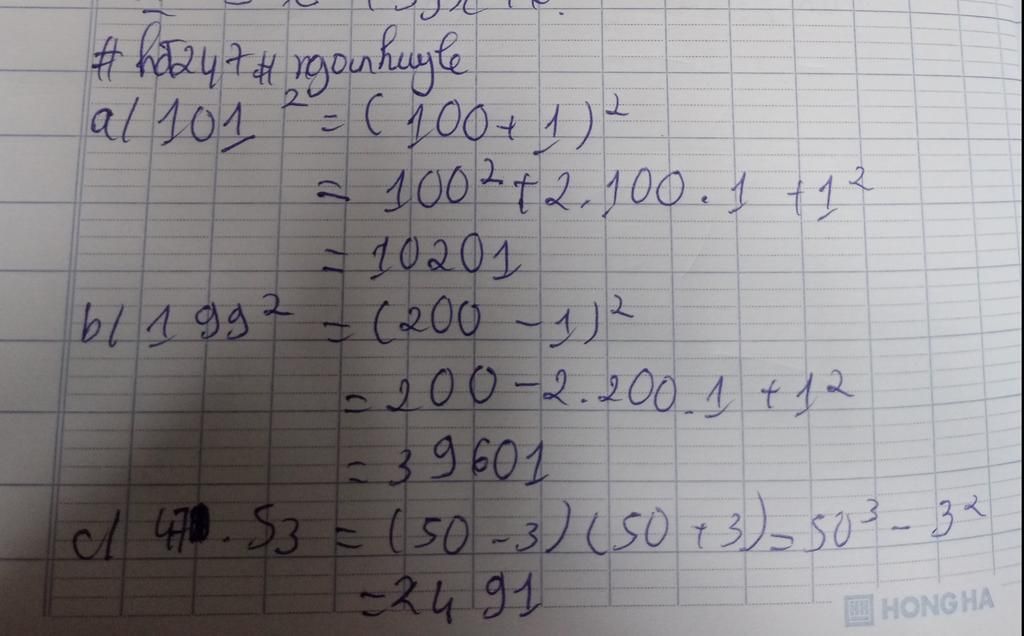 # h247 # ngoanhuyle
a/ 101² = (100 + 1)²
= 100² + 2.100.1 + 1²
= 10201
b/ 199² = (200 - 1)²
= 200 - 2.200.1 + 1²
= 39601
c/ 47 . 53 = (50 - 3)(50 + 3) = 50³ - 3²
= 2491
HONG HA